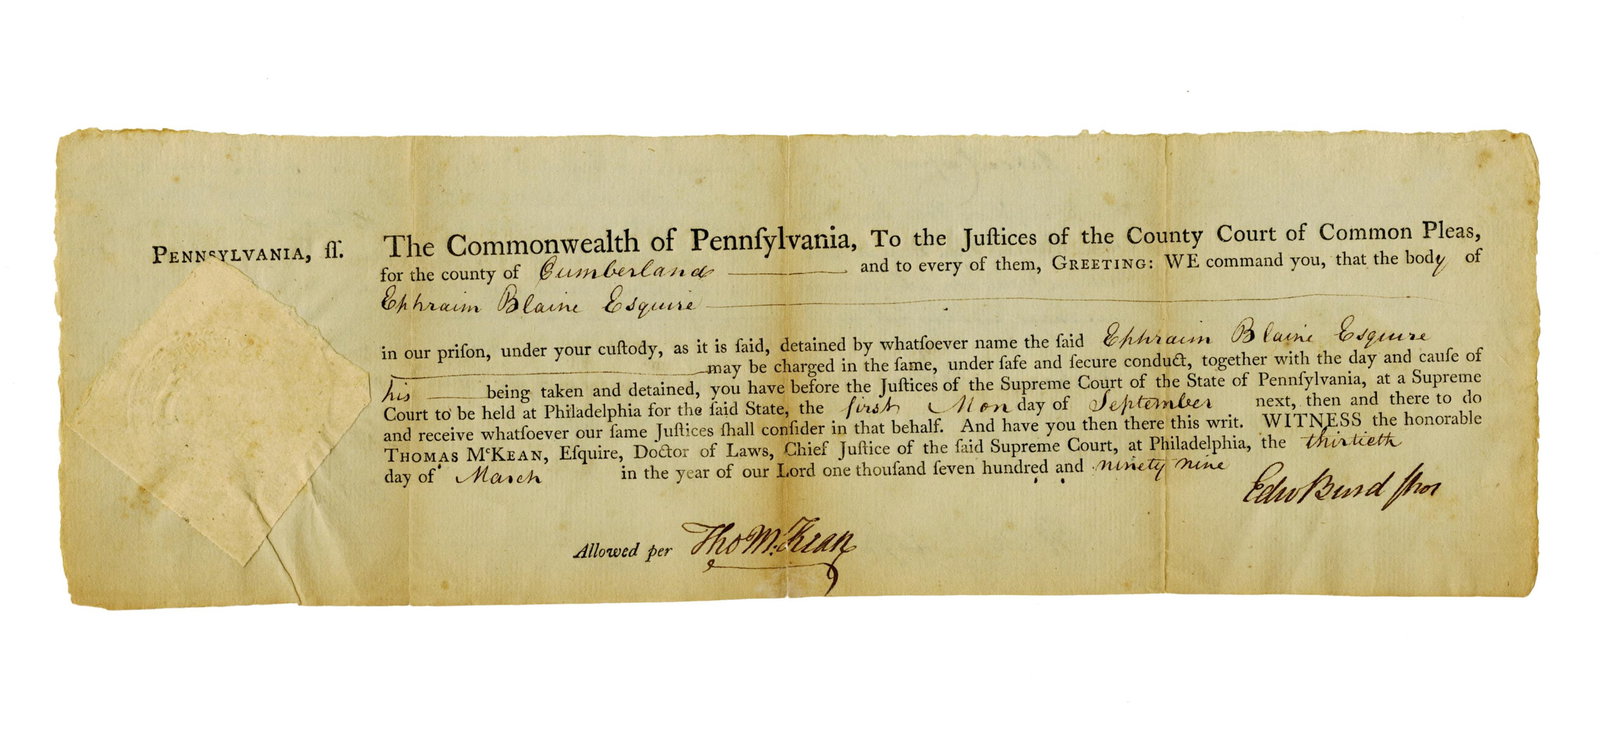 PENNSYLVANIA, ſſ.
The Commonwealth of Pennſylvania, To the Juſtices of the County Court of Common Pleas,
for the county of Cumberland and to every of them, GREETING: WE command you, that the body of
Ephraim Blaine Esquire
in our priſon, under your cuſtody, as it is ſaid, detained by whatſoever name the ſaid Ephraim Blaine Esquire
may be charged in the ſame, under ſafe and ſecure conduct, together with the day and cauſe of
his being taken and detained, you have before the Juſtices of the Supreme Court of the State of Pennſylvania, at a Supreme
Court to be held at Philadelphia for the ſaid State, the first Monday of September next, then and there to do
and receive whatſoever our ſame Juſtices ſhall conſider in that behalf. And have you then there this writ. WITNESS the honorable
THOMAS McKEAN, Eſquire, Doctor of Laws, Chief Juſtice of the ſaid Supreme Court, at Philadelphia, the thirtieth
day of March in the year of our Lord one thouſand ſeven hundred and ninety nine
Edw Burd
Allowed per Tho M:Kean